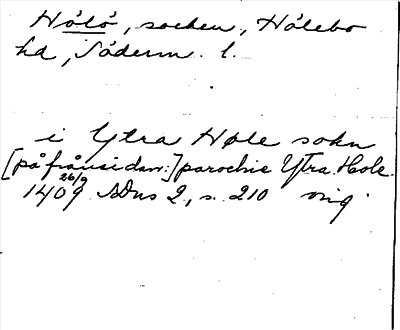 Hölö, socken, Hölebo
hd, Söderm. l.
i Ytra Høle sokn
[på frånsidan:] parochie Ytra Hole.
1409 26/9 SDns 2, s. 210 orig.